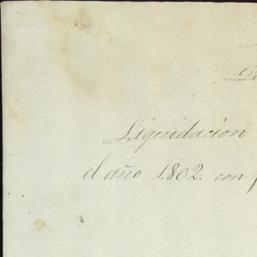 Liquidacion
el año 1802. con